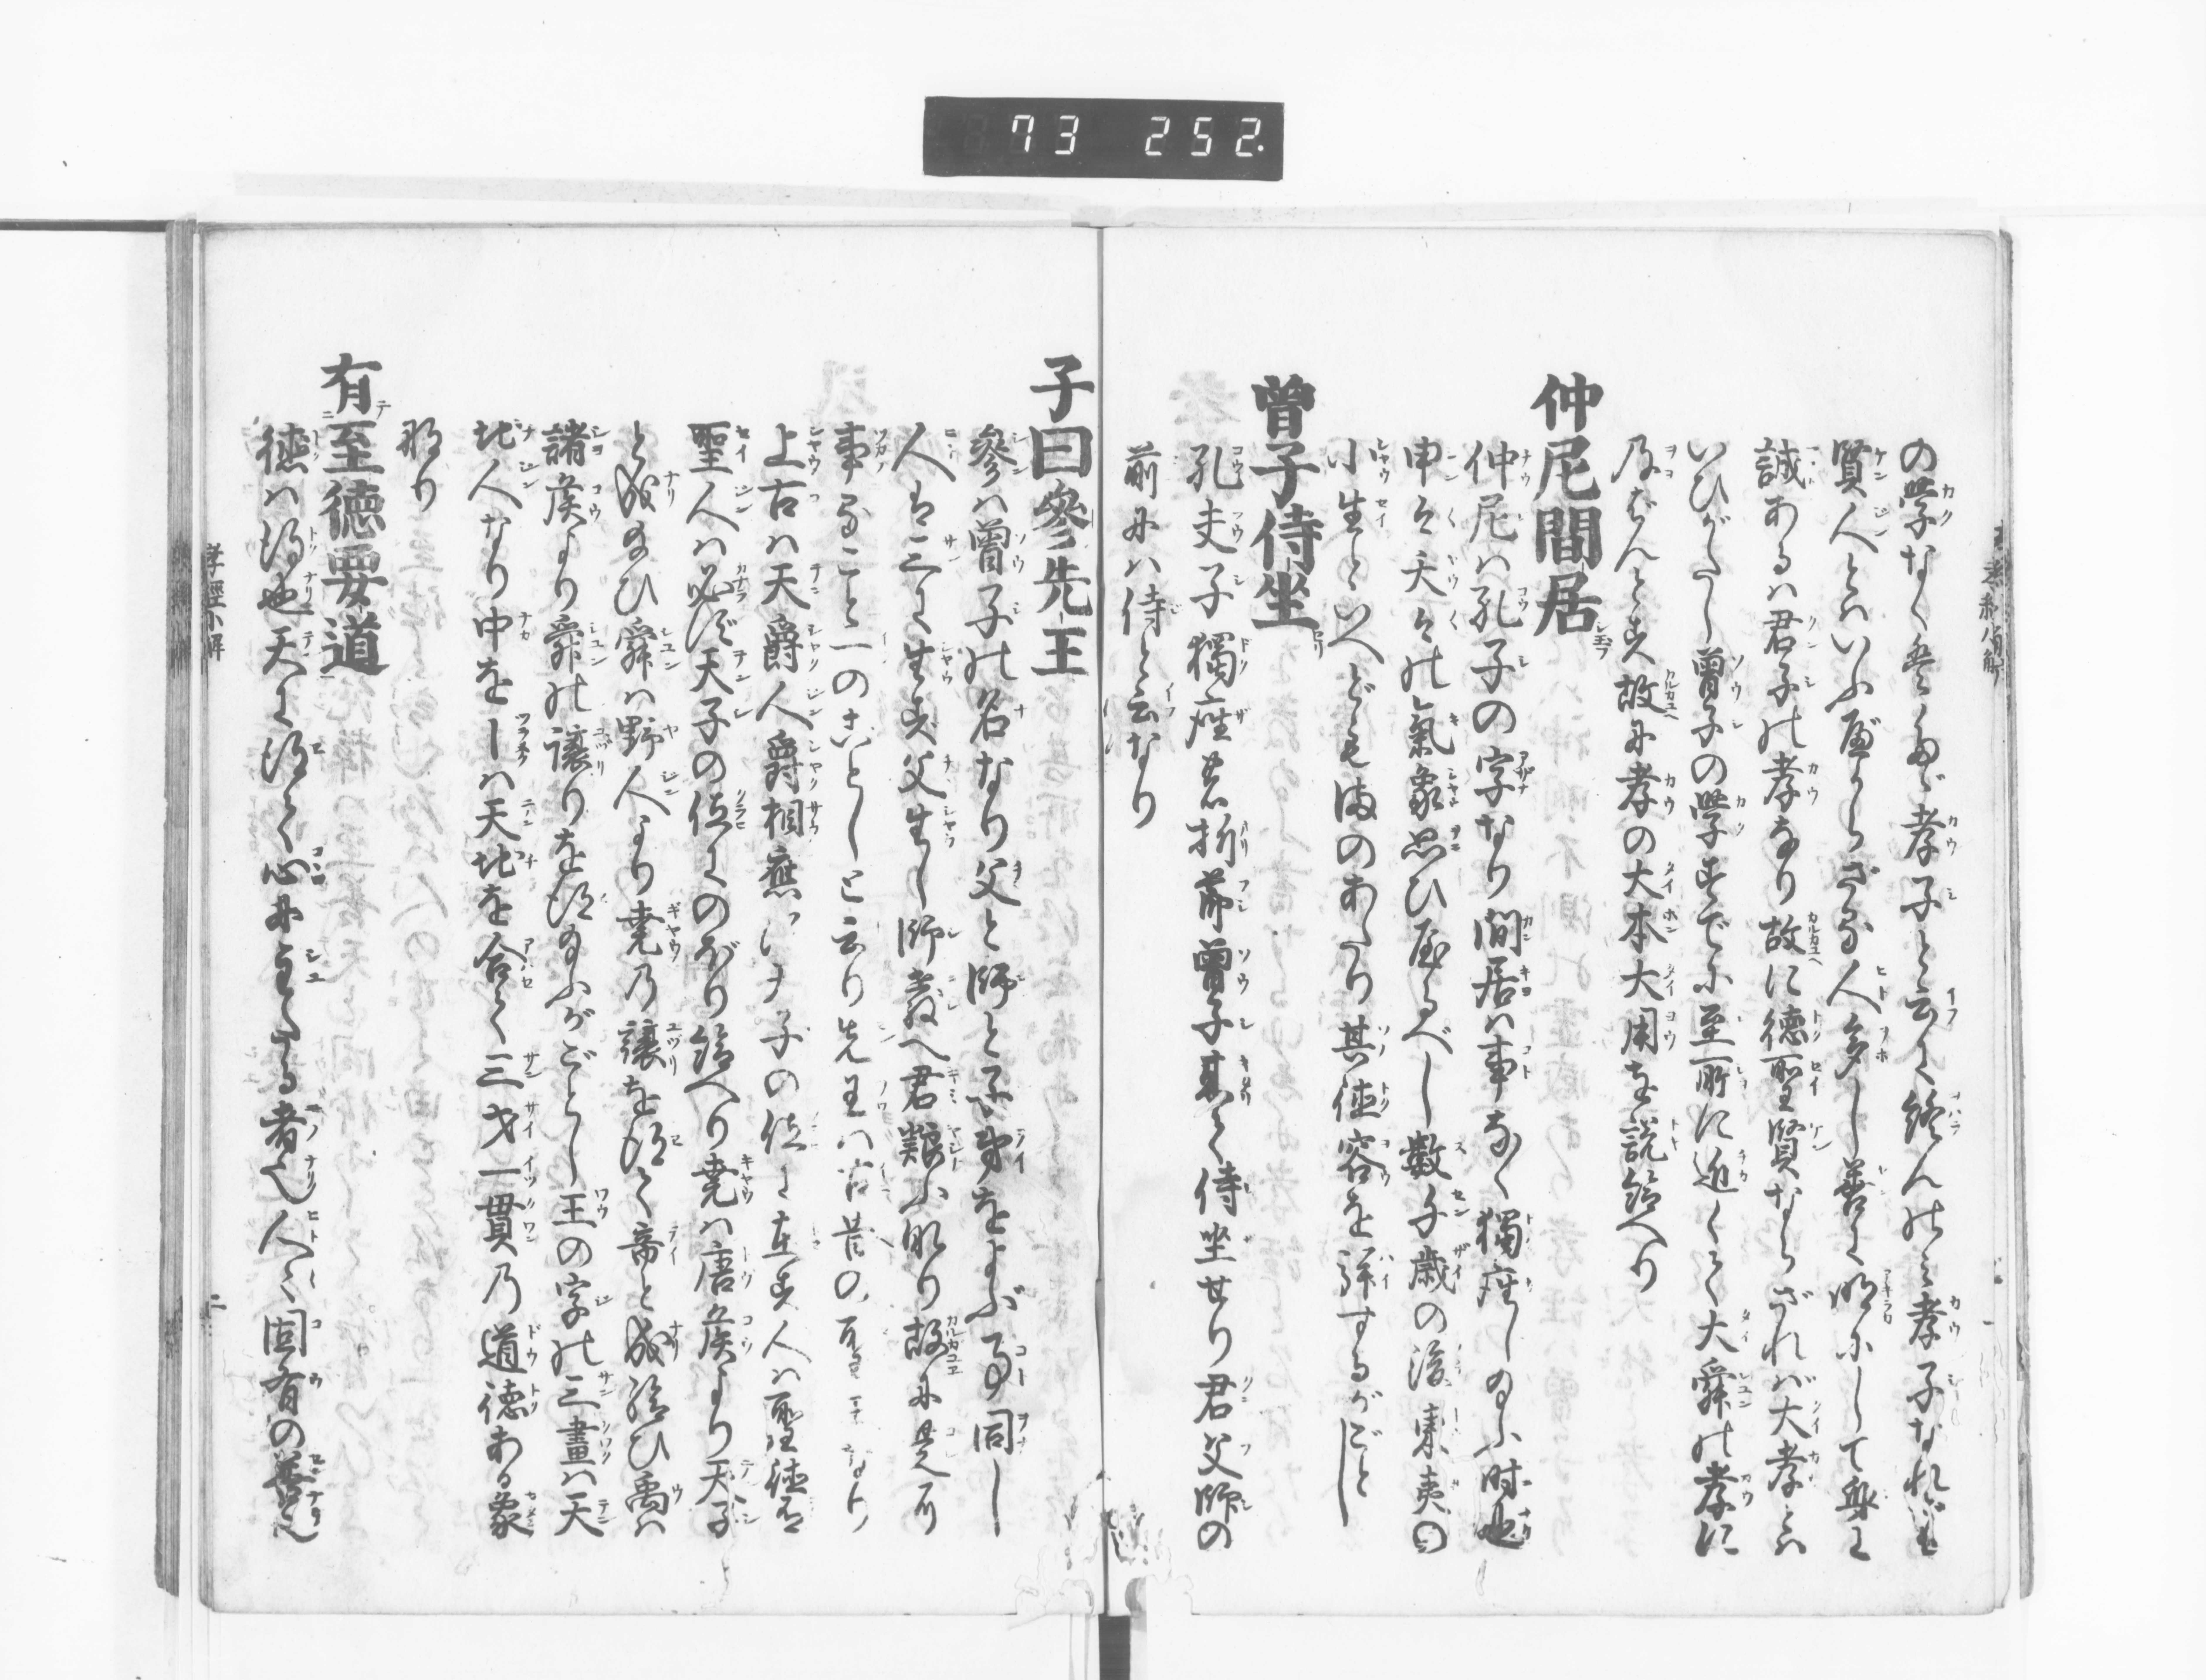 73 252.
の学なく無れば孝子と云て終んのミ孝子なれども
賢人とハいふ麁からざる人多し善に明にして身に
誠あるハ君子の孝なり故に徳聖賢ならざれバ大孝とハ
いひがたし曽子の学すでに至所に近くて大舜の孝に
及ばんとす故に孝の大本大用を説給へり
仲尼間居
仲尼ハ孔子の字なり間居ハ事なく獨座し給ふ時也
申々夭々の氣象思ひ居るべし数千歳の後東夷の
小生といへどもまのあたり其徳容を拝するがごとし
曽子侍坐
孔夫子獨座若折節曽子来て侍坐せり君父師の
前にハ侍と云なり
子曰參先王
參ハ曽子の名なり父と師と子弟をよぶ事同し
人ハ三に生す父生し師教へ君養ふなり故に是に
事ること一のごとしと云り先王ハ古昔の聖王なり
上古ハ天爵人爵相應して天子の位に在す人ハ聖徳有
聖人ハ必ず天子の位にのぼり給へり堯ハ唐侯より天子
と成給ひ舜ハ野人より堯乃譲を得て帝と成給ひ禹ハ
諸侯より舜の譲りを得給ふがごとし王の字の三畫ハ天
地人なり中を丨ハ天地を合て三才一貫乃道徳ある象
なり
有至徳要道
徳ハ得也天に得て心に主たる者也人々固有の善也
孝經小解
二